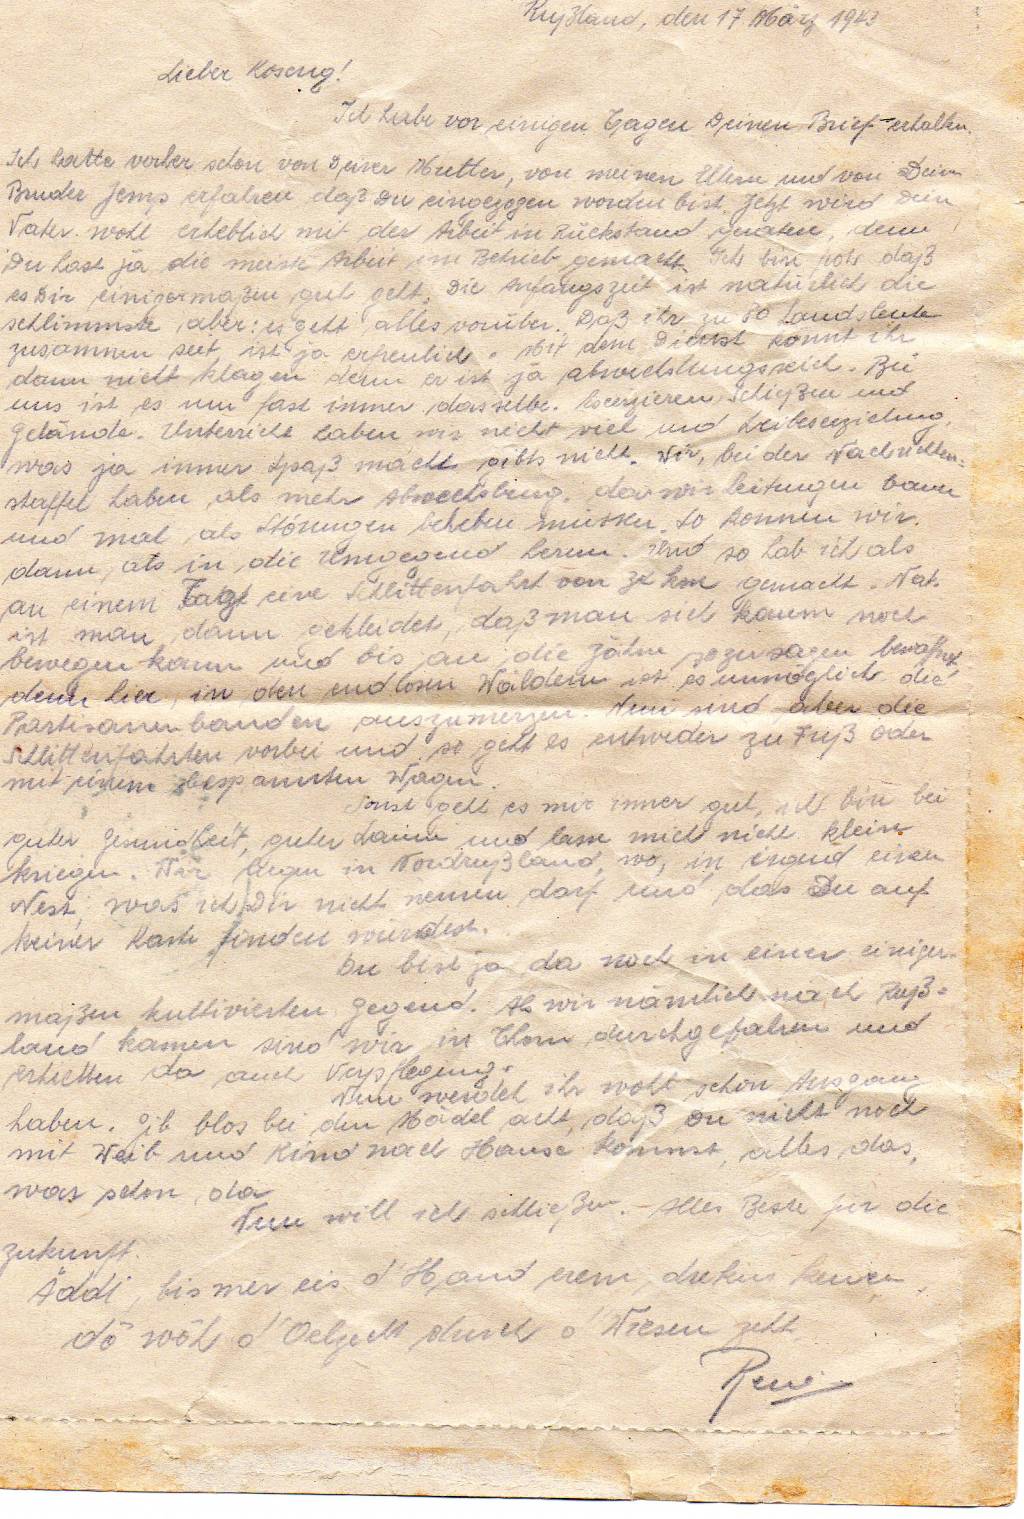 Rußland, den 17 März 1943
Lieber Koseng!
Ich habe vor einigen Tagen Deinen Brief erhalten.
Ich hatte vorher schon von Deiner Mutter, von meinen Eltern und von Dein
Bruder Jemp erfahren daß Du eingezogen worden bist. Jetzt wird Dein
Vater wohl erheblich mit der Arbeit in Rückstand geraten, denn
Du hast ja die meiste Arbeit im Betrieb gemacht. Ich bin froh daß
es Dir einigermaßen gut geht. Die Anfangszeit ist natürlich die
schlimmste aber: es geht alles vorüber. Daß ihr zu 80 Landsleute
zusammen seit, ist ja erfreulich. Mit dem Dienst könnt ihr
dann nicht klagen denn er ist ja abwechslungsreich. Bei
uns ist es nun fast immer dasselbe. Exerzieren, Schießen und
Gelände. Unterricht haben wir nicht viel und Leibeserziehung,
was ja immer Spaß macht gibts nicht. Wir, bei der Nachrichten=
staffel haben als mehr Abwechslung, da wir Leitungen bauen
und mal als Störungen beheben müssen. So kommen wir
dann, als in die Umgegend herum. Und so hab ich als
an einem Tage eine Schlittenfahrt von km gemacht. Nat.
ist man dann gekleidet, daß man sich kaum noch
bewegen kann und bis an die Zähne sozusagen bewaffnet
denn hier, in den endlosen Wäldern ist es unmöglich die
Partisanenbanden auszumerzen. Nun sind aber die
Schlittenfahrten vorbei und so geht es entweder zu Fuß oder
mit einem bespannten Wagen.
Sonst geht es mir immer gut, ich bin bei
guter Gesundheit, guter Laune und lasse mich nicht klein
kriegen. Wir liegen in Nordrußland, wo, in irgend einem
Nest, was ich Dir nicht nennen darf und das Du auf
keiner Karte finden würdest.
Du bist ja da noch in einer einiger-
maßen kultivierten Gegend. Als wir nämlich nach Ruß=
land kamen sind wir in Thorn durchgefahren und
erhielten da auch Verpflegung.
Nun werdet ihr wohl schon Ausgang
haben. Gib blos bei den Mädel acht, daß Du nicht noch
mit Weib und Kind nach Hause kommst, alles das,
was schon da
Nun will ich schließen. - Alles Beste für die
Zukunft.
Äddi, bis mer eis d'Hand erem drecken
dö wöh d' durch d'Wiesen zeht
René